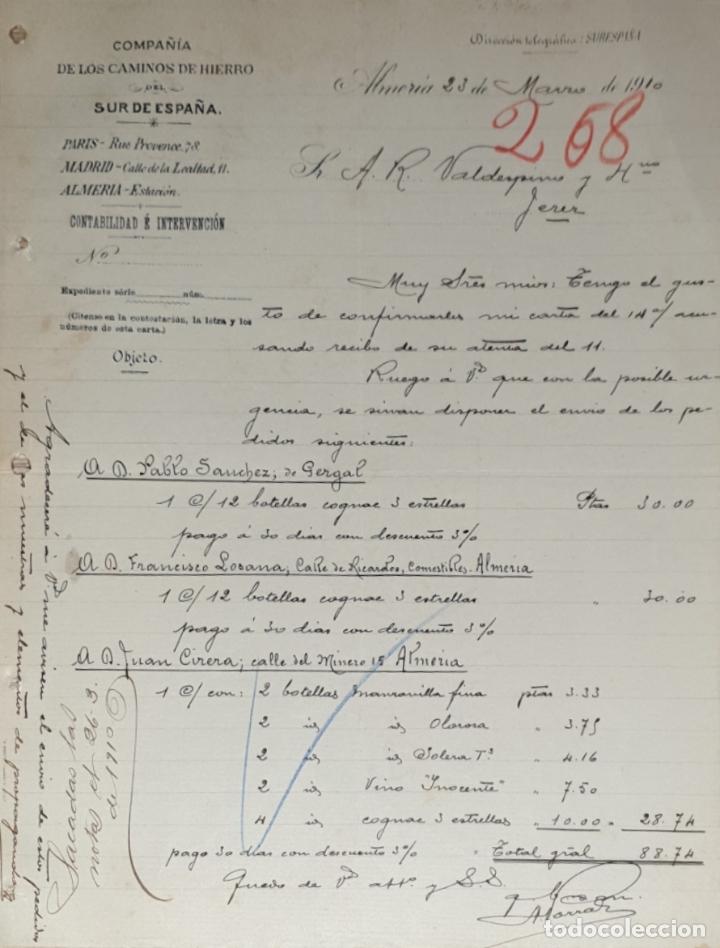 Dirección telegráfica: SURESPAÑA
COMPAÑÍA
DE LOS CAMINOS DE HIERRO
DEL
SUR DE ESPAÑA.
PARIS - Rue Provence, 78.
MADRID - Calle de la Lealtad, 11.
ALMERIA - Estación.
CONTABILIDAD É INTERVENCIÓN
Nº
Expediente série núm.
(Cítense en la contestación, la letra y los
números de esta carta.)
Objeto.
Almería 23 de Marzo de 1910
268
Sr A. R. Valdespino y Hno
Jerez
Muy Sres mios: Tengo el gus-
to de confirmarles mi carta del 14 acu-
sando recibo de su atenta del 11.
Ruego á Vd que con la posible ur-
gencia, se sirvan disponer el envio de los pe-
didos siguientes:
A D. Pablo Sanchez, de Gergal
1 C/ 12 botellas cognac 3 estrellas Ptas 30.00
pago á 30 dias con descuento 3%
A D. Francisco Losana, Calle de Ricardos, Comestibles. Almeria
1 C/ 12 botellas cognac 3 estrellas " 30.00
pago á 30 dias con descuento 3%
A D. Juan Cirera, calle del Minero 15 Almeria
1 C/ con: 2 botellas manzanilla fina ptas 3.33
2 id id Olorosa " 3.75
2 id id Solera Tª " 4.16
2 id Vino "Inocente" " 7.50
4 id cognac 3 estrellas " 10.00 " 28.74
pago 30 dias con descuento 3% Total gral 88.74
Quedo de Vd atto. y S.S.
Agradeceré á Vd me avisen el envio de estos pedidos
y el de las muestras y elementos de propaganda
todocoleccion